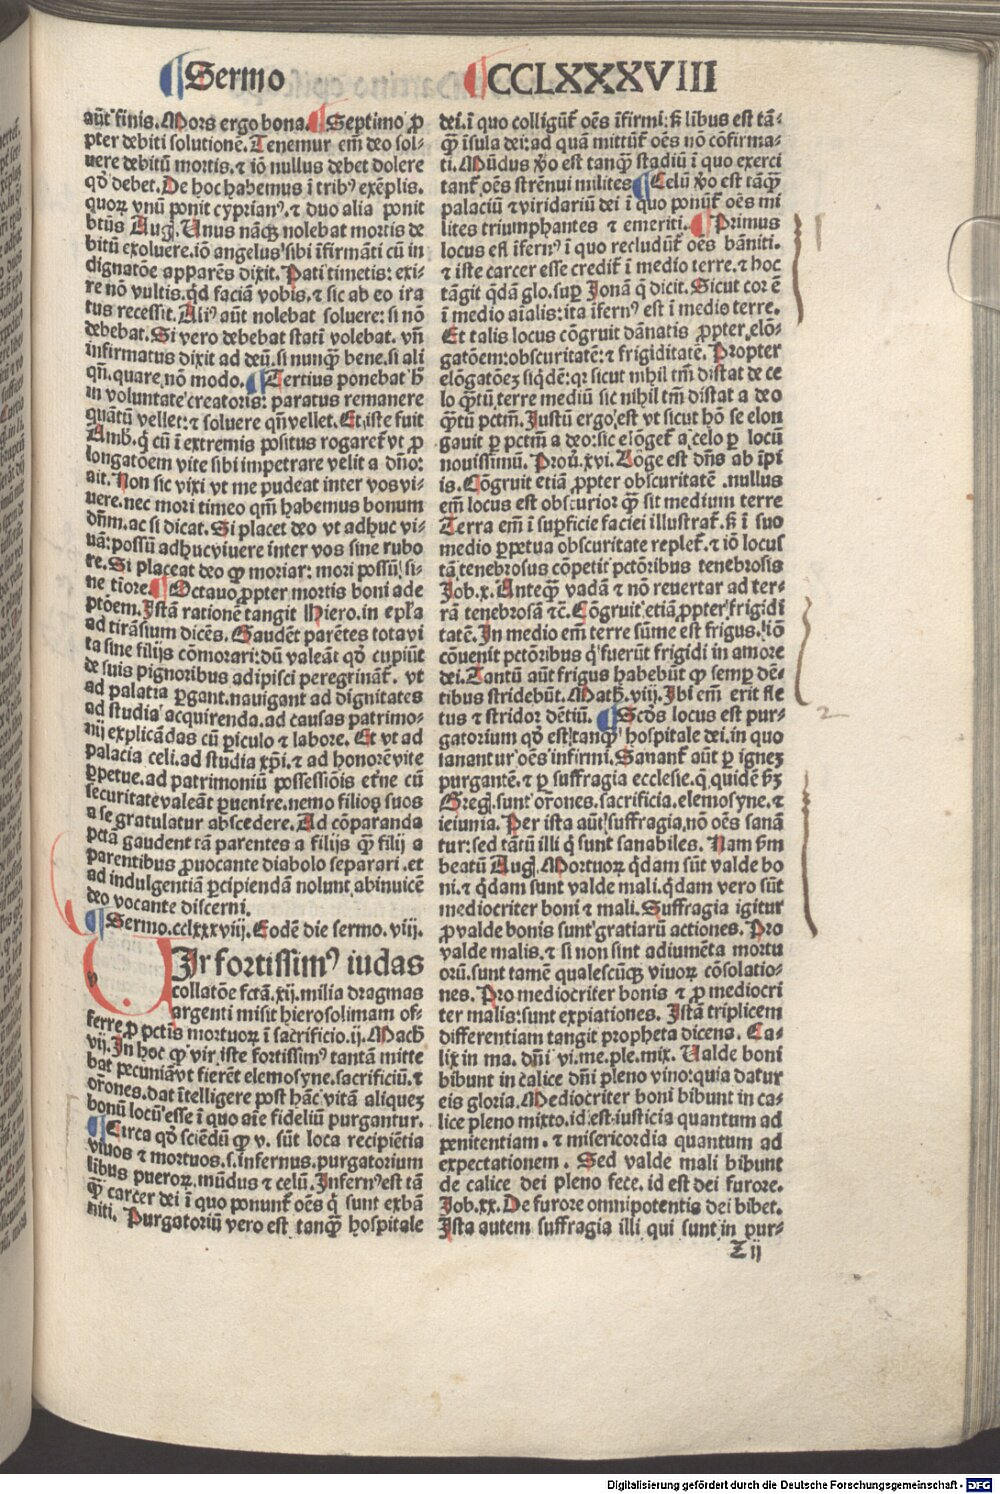 Sermo CCLXXXVIII
aūt finis. Mors ergo bona. Septimo ꝓ
pter debiti solutionē. Tenemur em̄ deo sol-
uere debitū mortis. ⁊ iō nullus debet dolere
qđ debet. De hoc habemus ī tribꝰ exēplis.
quoꝝ vnū ponit cyprianꝰ. ⁊ duo alia ponit
btūs Augꝭ. Unus nāqꝫ nolebat mortis de
bitū exoluere. iō angelus sibi īfirmāti cū in
dignatōe apparēs dixit. Pati timetis: exi-
re nō vultis. qđ faciā vobis. ⁊ sic ab eo ira
tus recessit. Aliꝰ aūt nolebat soluere: si nō
debebat. Si vero debebat statī volebat. vn̄
infirmatus dixit ad deū. si nunqꝫ bene. si ali
qn̄. quare nō modo. Tertius ponebat h̄
in voluntate creatoris: paratus remanere
quātū vellet: ⁊ soluere qn̄ vellet. Et iste fuit
Amb̄. q̇ cū ī extremis positus rogaret̄ vt ꝓ
longatōem vite sibi impetrare velit a dn̄o:
ait. Non sic vixi vt me pudeat inter vos vi-
uere. nec mori timeo qm̄ habemus bonum
dn̄m. ac si dicat. Si placet deo vt adhuc vi-
uā: possū adhuc viuere inter vos sine rubo
re. Si placeat deo ꝙ moriar: mori possū si-
ne tīore. Octauo ꝓpter mortis boni ade
ptōem. Istā rationē tangit Hiero. in epl̄a
ad tirāsium dicēs. Gaudēt parētes tota vi
ta sine filijs cōmorari: dū valeāt qđ cupiūt
de suis pignoribus adipisci peregrināt̄. vt
ad palatia ꝑgant. nauigant ad dignitates
ad studia acquirenda. ad causas patrimo-
nij explicādas cū ꝑiculo ⁊ labore. Et vt ad
palacia celi. ad studia xp̄i. ⁊ ad honorē vite
ꝑpetue. ad patrimoniū possessiōis etn̄e cū
securitate valeāt ꝑuenire. nemo filios suos
a se gratulatur abscedere. Ad cōparanda
pctā gaudent tā parentes a filijs qꝫ filij a
parentibus ꝓuocante diabolo separari. et
ad indulgentiā ꝑcipiendam nolunt abinuicē
deo vocante discerni.
Sermo. cclxxxviij. Eodē die sermo. viij.
VIr fortissimꝰ iudas
collatōe fctā. xij. milia dragmas
argenti misit hierosolimam of-
ferre ꝓ pctīs mortuoꝝ ī sacrificio. ij. Mach̄
vij. In hoc ꝙ vir iste fortissimꝰ tantā mitte
bat pecuniā vt fierēt elemosyne. sacrificiū. ⁊
or̄ones. dat ītelligere post hāc vitā aliquez
bonū locū esse ī quo aīe fideliū purgantur.
Circa qđ sciēdū ꝙ v. sūt loca recipiētia
viuos ⁊ mortuos. s. infernus. purgatorium
libus pueroꝝ. mūdus ⁊ celū. Infernꝰ est tā
qꝫ carcer dei ī quo ponunt̄ oēs q̇ sunt exbā
niti. Purgatoriū vero est tanqꝫ hospitale
dei. ī quo colligūt̄ oēs īfirmi: s̄ libus est tā-
qꝫ īsula dei: ad quā mittūt̄ oēs nō cōfirma-
ti. Mūdus v̄o est tanqꝫ stadiū ī quo exerci
tant̄ oēs strēnui milites. Celū v̄o est tāqꝫ
palaciū ⁊ viridariū dei ī quo ponūt̄ oēs mi
lites triumphantes ⁊ emeriti. Primus
locus est īfernꝰ ī quo recludūt̄ oēs bāniti.
⁊ iste carcer esse credit̄ ī medio terre. ⁊ hoc
tāgit qđā glo. suꝑ Jonā q̇ dicit. Sicut cor ē
ī medio aīalis: ita īfernꝰ est ī medio terre.
Et talis locus cōgruit dānatis ꝓpter elō-
gatōem: obscuritatē: ⁊ frigiditatē. Propter
elōgatōeꝫ siqđē: qꝛ sicut nihil tm̄ distat de ce
lo qꝫtū terre mediū sic nihil tm̄ distat a deo
qꝫtū pctm̄. Justū ergo est vt sicut hō se elon
gauit ꝑ pctm̄ a deo: sic elōget̄ a celo ꝑ locū
nouissimū. Prou̇. xvi. Lōge est dn̄s ab īpi
is. Cōgruit etiā ꝓpter obscuritatē. nullus
em̄ locus est obscurior qꝫ sit medium terre
Terra em̄ ī suꝑficie faciei illustrat̄. s̄ ī suo
medio ꝑpetua obscuritate replet̄. ⁊ iō locus
tā tenebrosus cōpetit pctōribus tenebrosis
Job. x. Anteqꝫ vadā ⁊ nō reuertar ad ter-
rā tenebrosā ⁊c̄. Cōgruit etiā ꝓpter frigidi
tatē. In medio em̄ terre sūme est frigus. iō
cōuenit pctōribus q̇ fuerūt frigidi in amore
dei. Tantū aūt frigus habebūt ꝙ semꝑ dē-
tibus stridebūt. Math̄. viij. Ibi em̄ erit fle
tus ⁊ stridor dētiū. Scđs locus est pur-
gatorium qđ est tanqꝫ hospitale dei. in quo
sanantur oēs infirmi. Sanant̄ aūt ꝑ ignez
purgantē. ⁊ ꝑ suffragia ecclesie. q̇ quidē ẜm
Gregꝭ. sunt or̄ones. sacrificia. elemosyne. ⁊
ieiunia. Per ista aūt suffragia nō oēs sanā
tur: sed tātū illi q̇ sunt sanabiles. Nam ẜm
beatū Augꝭ. Mortuoꝝ q̇dam sūt valde bo
ni. ⁊ q̇dam sunt valde mali. q̇dam vero sūt
mediocriter boni ⁊ mali. Suffragia igitur
ꝓ valde bonis sunt gratiarū actiones. Pro
valde malis. ⁊ si non sint adiumēta mortu
orū. sunt tamē qualescūqꝫ viuoꝝ cōsolatio-
nes. Pro mediocriter bonis ⁊ ꝓ mediocri
ter malis: sunt expiationes. Istā triplicem
differentiam tangit propheta dicens. Ca-
lix in ma. dn̄i vi. me. ple. mix. Valde boni
bibunt in calice dn̄i pleno vino: quia datur
eis gloria. Mediocriter boni bibunt in ca-
lice pleno mixto. id est iusticia quantum ad
penitentiam. ⁊ misericordia quantum ad
expectationem. Sed valde mali bibunt
de calice dei pleno fece. id est dei furore.
Job. xx. De furore omnipotentis dei bibet.
Ista autem suffragia illi qui sunt in pur-
Z ij
1
2
Digitalisierung gefördert durch die Deutsche Forschungsgemeinschaft - DFG